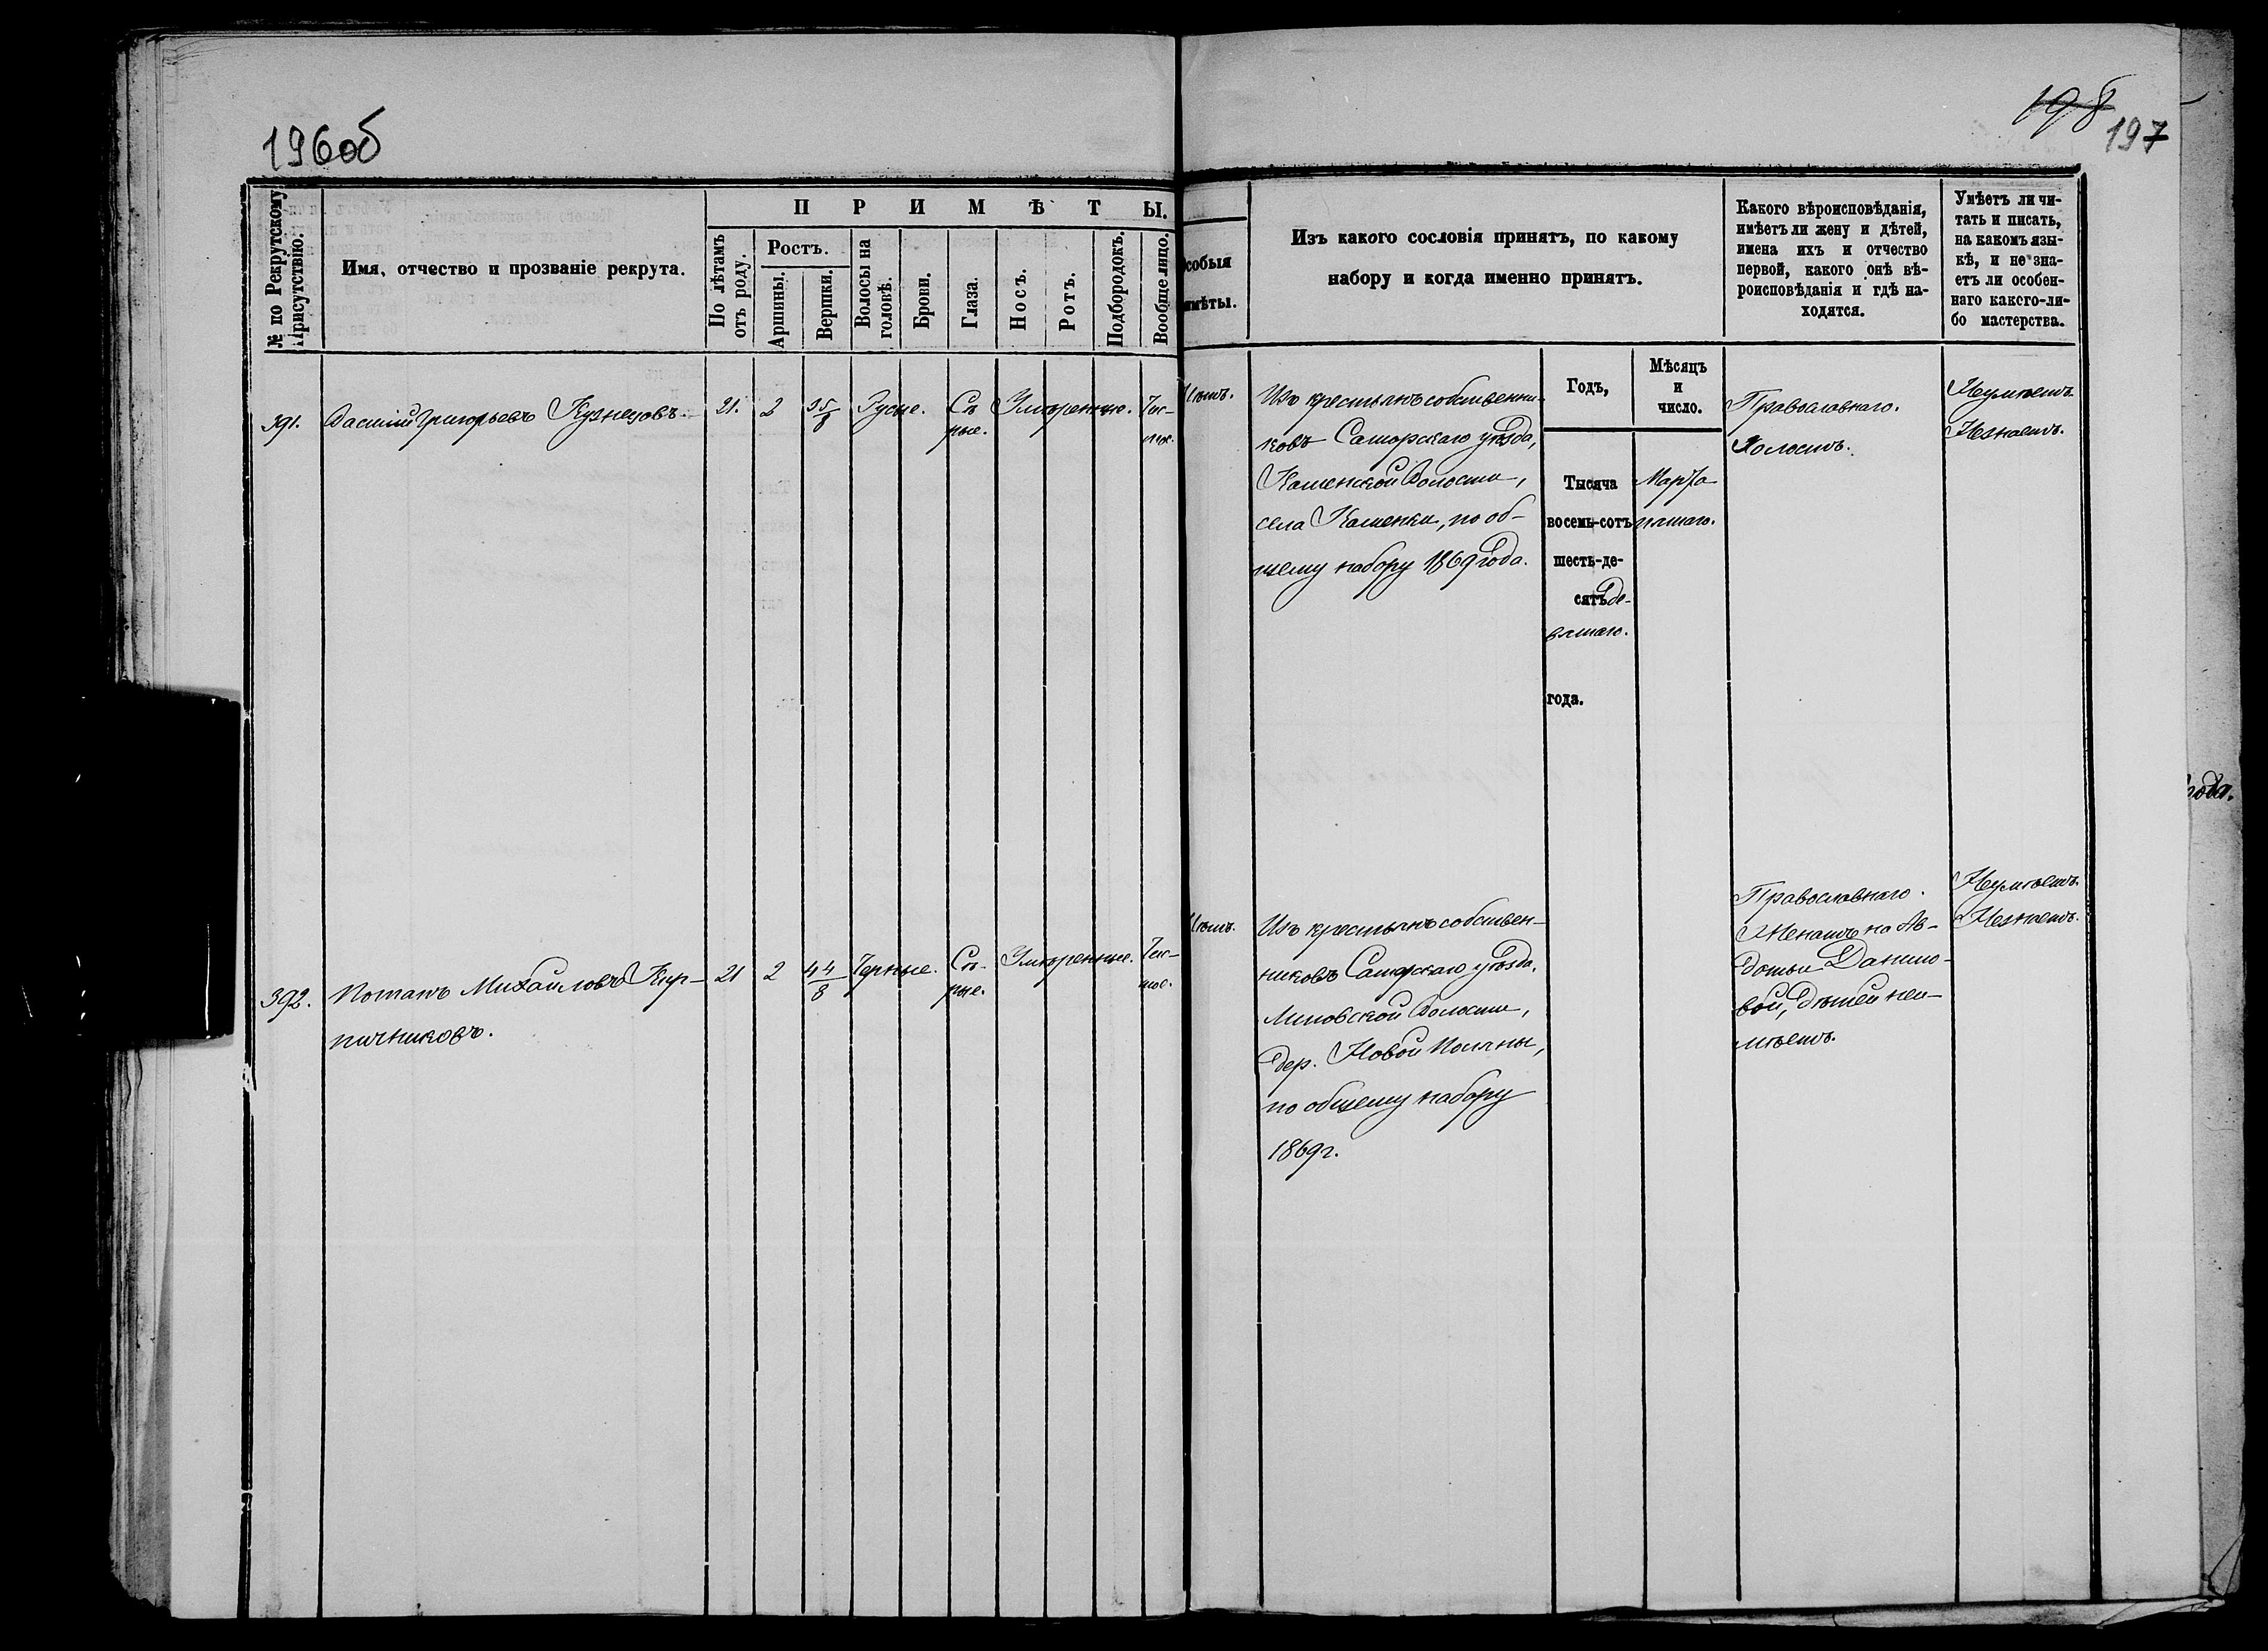 196об
198
197
№ по Рекрутскому Присутствію.
Имя, отчество и прозваніе рекрута.
ПРИМѢТЫ.
По лѣтамъ отъ роду.
Ростъ.
Аршины.
Вершки.
Волосы на головѣ.
Брови.
Глаза.
Носъ.
Ротъ.
Подбородокъ.
Вообще лицо.
собыя
имѣты.
Изъ какого сословія принятъ, по какому
набору и когда именно принятъ.
Какого вѣроисповѣданія,
имѣетъ ли жену и дѣтей,
имена ихъ и отчество
первой, какого онѣ вѣ-
роисповѣданія и гдѣ на-
ходятся.
Умѣетъ ли чи-
тать и писать,
на какомъ язы-
кѣ, и не зна-
етъ ли особен-
наго какого-ли-
бо мастерства.
Годъ,
Мѣсяцъ
и
число.
391. Василій Григорьевъ Кузнецовъ. 21. 2 3 5/8 Русые. Сѣ-
рые. Умѣренные. Чис-
тое.
Нѣтъ.
Изъ крестьянъ собственни-
ковъ Самарскаго уѣзда,
Каменской Волости,
села Каменки, по об-
щему набору 1869 года.
Тысяча
восемь-сотъ
шесть-де-
сятъ де-
вятаго.
года.
Марта
пятаго.
Православнаго.
Холостъ.
Неумѣетъ.
Незнаетъ.
392. Потапъ Михайловъ Кир-
пичниковъ.
21 2 4 4/8 Черные. Сѣ-
рые. Умѣренные. Чис-
тое.
Нѣтъ.
Изъ крестьянъ собствен-
никовъ Самарскаго уѣзда,
Липовской Волости,
дер. Новой Поляны,
по общему набору
1869 г.
Православнаго.
Женатъ на Ав-
дотьи Данило-
вой, дѣтей неи-
мѣетъ.
Неумѣетъ.
Незнаетъ.
года.